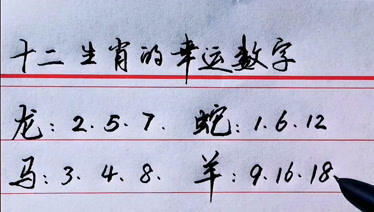 十二生肖的幸运数字
龙：2.5.7. 蛇：1.6.12
马：3.4.8. 羊：9.16.18.